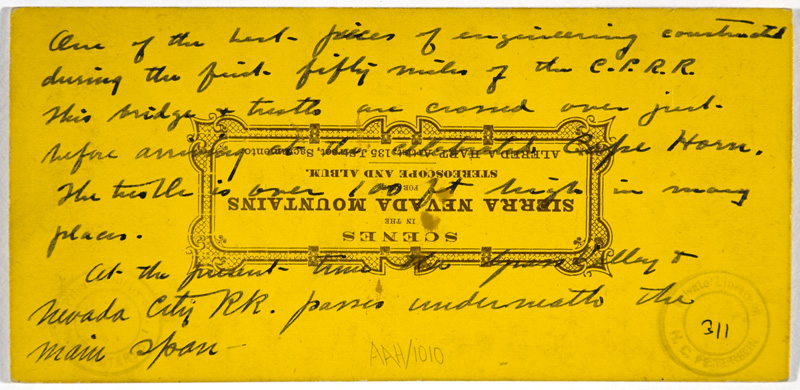 One of the best pieces of engineering constructed
during the first fifty miles of the C.P.R.R.
This bridge & trestle are crossed over just
before arriving at the celebrated Cape Horn.
The trestle is over 100 ft high in many
places.
At the present time the Grass Valley &
Nevada City RR. passes underneath the
main span
SCENES
IN THE
SIERRA NEVADA MOUNTAINS
FOR THE
STEREOSCOPE AND ALBUM.
ALFRED A. HART, Artist, 135 J Street, Sacramento.
311
AAH/1010